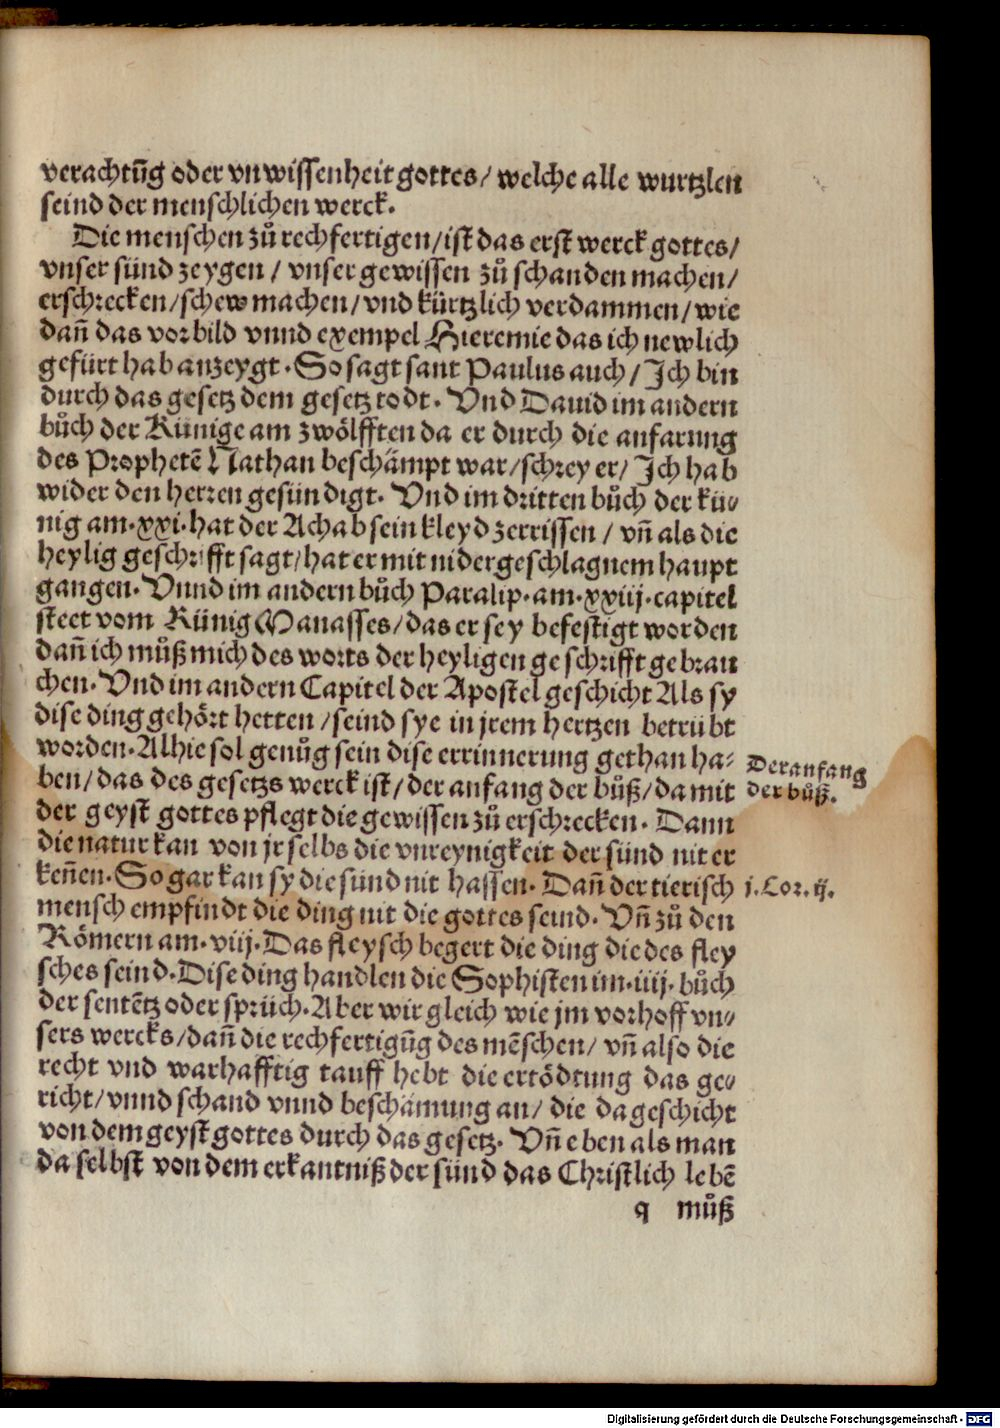 verachtũg oder vnwissenheit gottes/ welche alle wurtzlen
seind der menschlichen werck.
Die menschen zů rechfertigen/ist das erst werck gottes/
vnser sünd zeygen / vnser gewissen zů schanden machen/
erschrecken/schew machen/vnd kürtzlich verdammen/wie
dañ das vorbild vnnd exempel Hieremie das ich newlich
gefürt hab anzeygt. So sagt sant Paulus auch/ Ich bin
durch das gesetz dem gesetz todt. Vnd Dauid im andern
bůch der Künige am zwölfften da er durch die anfarung
des Prophetẽ Nathan beschämpt war/schrey er/ Ich hab
wider den herren gesündigt. Vnd im dritten bůch der kü-
nig am.xxi.hat der Achab sein kleyd zerrissen / vñ als die
heylig geschrifft sagt/hat er mit nidergeschlagnem haupt
gangen. Vnnd im andern bůch Paralip.am.xxiij.capitel
steet vom Künig Manasses/das er sey befestigt worden
dañ ich můß mich des worts der heyligen geschrifft gebrau
chen. Vnd im andern Capitel der Apostel geschicht Als sy
dise ding gehört hetten /seind sye in jrem hertzen betrübt
worden. Alhie sol genůg sein dise errinnerung gethan ha-
ben/das des gesetzs werck ist/der anfang der bůß/da mit
der geyst gottes pflegt die gewissen zů erschrecken. Dann
die natur kan von jr selbs die vnreynigkeit der sünd nit er
keñen. So gar kan sy die sünd nit hassen. Dañ der tierisch
mensch empfindt die ding nit die gottes seind. Vñ zů den
Römern am.viij.Das fleysch begert die ding die des fley
sches seind. Dise ding handlen die Sophisten im.iiij.bůch
der sentẽtz oder sprüch. Aber wir gleich wie jm vorhoff vn-
sers wercks/dañ die rechfertigũg des mẽschen/ vñ also die
recht vnd warhafftig tauff hebt die ertödtung das ge-
richt/vnnd schand vnnd beschämung an/ die da geschicht
von dem geyst gottes durch das gesetz. Vñ eben als man
da selbst von dem erkantniß der sünd das Christlich lebẽ
q můß
Der anfang
der bůß.
j. Cor. ij.
Digitalisierung gefördert durch die Deutsche Forschungsgemeinschaft - DFG